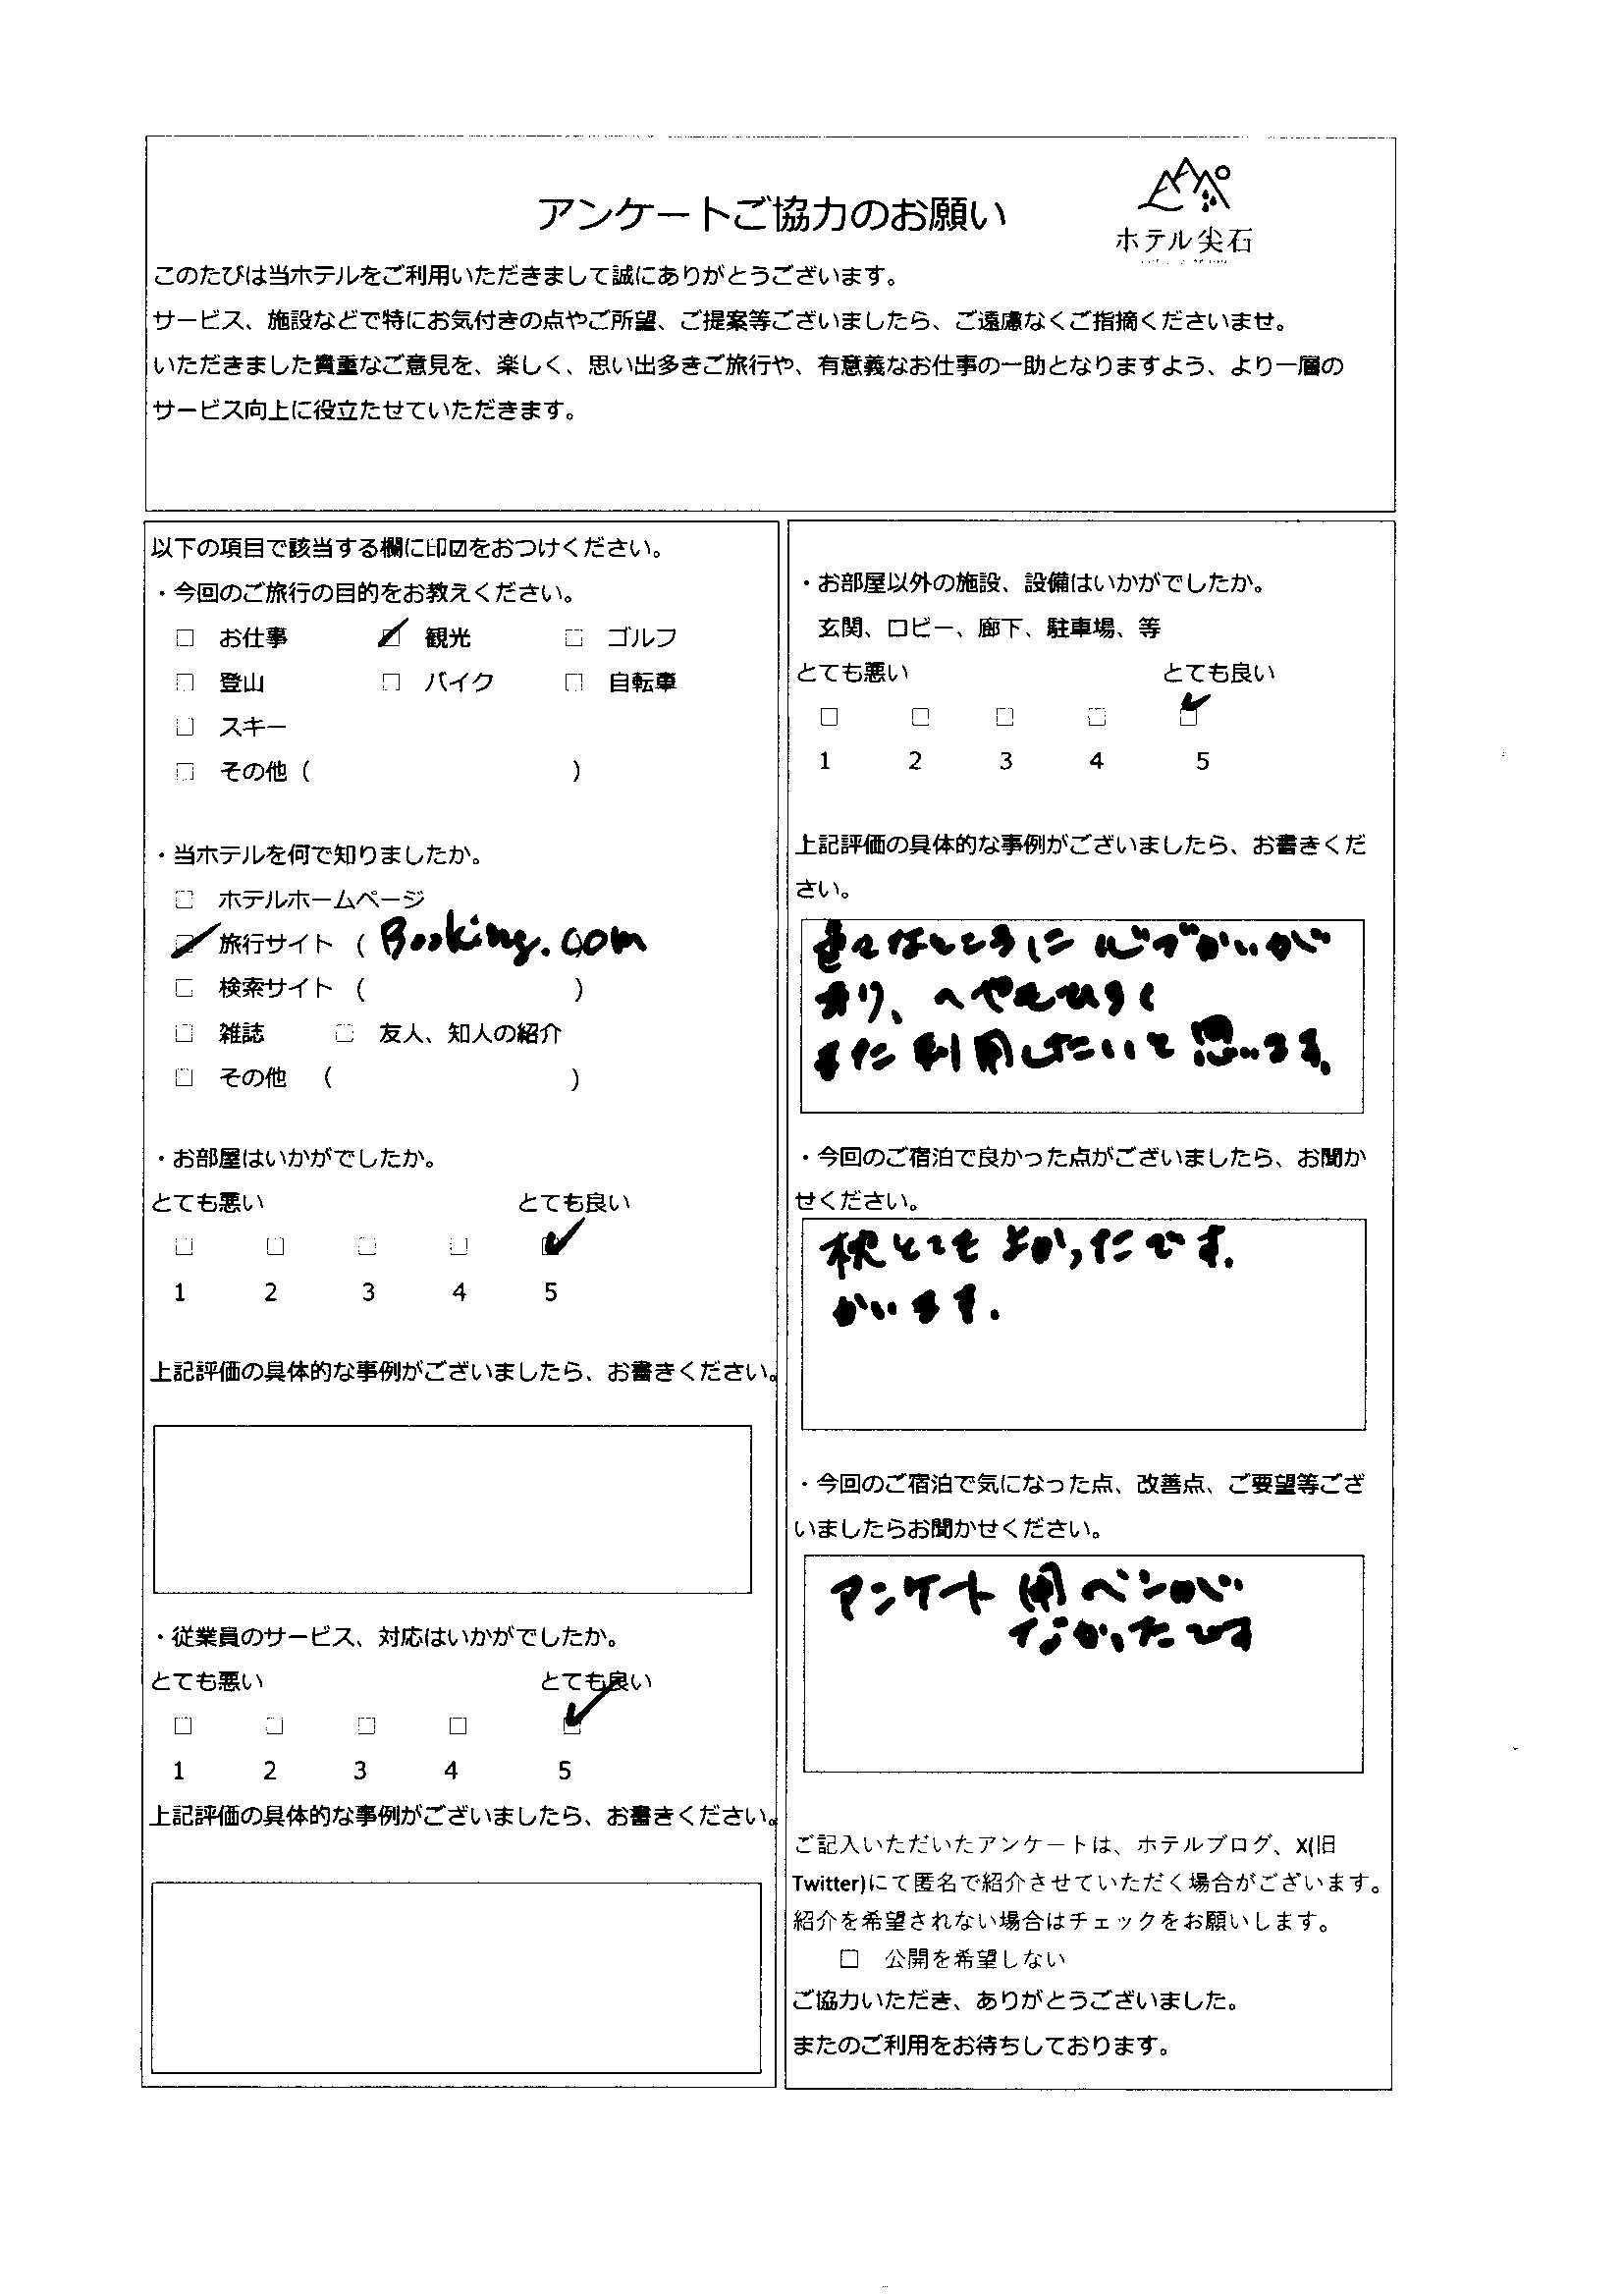 アンケートご協力のお願い
ホテル尖石
このたびは当ホテルをご利用いただきまして誠にありがとうございます。
サービス、施設などで特にお気付きの点やご所望、ご提案等ございましたら、ご遠慮なくご指摘くださいませ。
いただきました貴重なご意見を、楽しく、思い出多きご旅行や、有意義なお仕事の一助となりますよう、より一層の
サービス向上に役立たせていただきます。
以下の項目で該当する欄に印☑をおつけください。
・今回のご旅行の目的をお教えください。
□ お仕事 ☑ 観光 □ ゴルフ
□ 登山 □ バイク □ 自転車
□ スキー
□ その他 ( )
・当ホテルを何で知りましたか。
□ ホテルホームページ
☑ 旅行サイト ( Booking.com )
□ 検索サイト ( )
□ 雑誌 □ 友人、知人の紹介
□ その他 ( )
・お部屋はいかがでしたか。
とても悪い とても良い
□ □ □ □ ☑
1 2 3 4 5
上記評価の具体的な事例がございましたら、お書きください。
・従業員のサービス、対応はいかがでしたか。
とても悪い とても良い
□ □ □ □ ☑
1 2 3 4 5
上記評価の具体的な事例がございましたら、お書きください。
・お部屋以外の施設、設備はいかがでしたか。
玄関、ロビー、廊下、駐車場、等
とても悪い とても良い
□ □ □ □ ☑
1 2 3 4 5
上記評価の具体的な事例がございましたら、お書きくだ
さい。
色々なところに心づかいが
あり、へやもひろく
また利用したいと思います。
・今回のご宿泊で良かった点がございましたら、お聞か
せください。
枕とてもよかったです。
かいます。
・今回のご宿泊で気になった点、改善点、ご要望等ござ
いましたらお聞かせください。
アンケート用ペンが
なかったです
ご記入いただいたアンケートは、ホテルブログ、X(旧
Twitter)にて匿名で紹介させていただく場合がございます。
紹介を希望されない場合はチェックをお願いします。
□ 公開を希望しない
ご協力いただき、ありがとうございました。
またのご利用をお待ちしております。